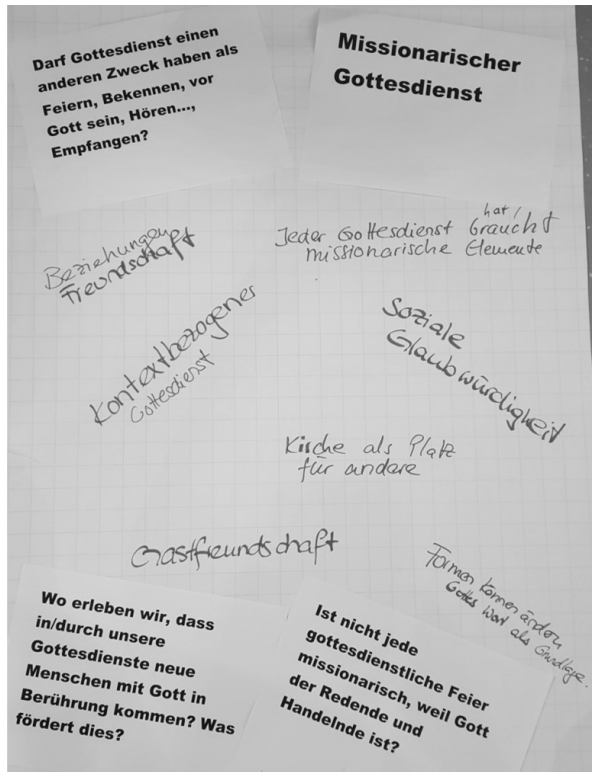 Darf Gottesdienst einen
anderen Zweck haben als
Feiern, Bekennen, vor
Gott sein, Hören...,
Empfangen?
Missionarischer
Gottesdienst
Beziehungen
Freundschaft
hat /
Jeder Gottesdienst braucht
missionarische Elemente
Kontextbezogener
Gottesdienst
Soziale
Glaubwürdigkeit
Kirche als Platz
für andere
Gastfreundschaft
Formen können ändern
Gottes Wort als Grundlage.
Wo erleben wir, dass
in/durch unsere
Gottesdienste neue
Menschen mit Gott in
Berührung kommen? Was
fördert dies?
Ist nicht jede
gottesdienstliche Feier
missionarisch, weil Gott
der Redende und
Handelnde ist?